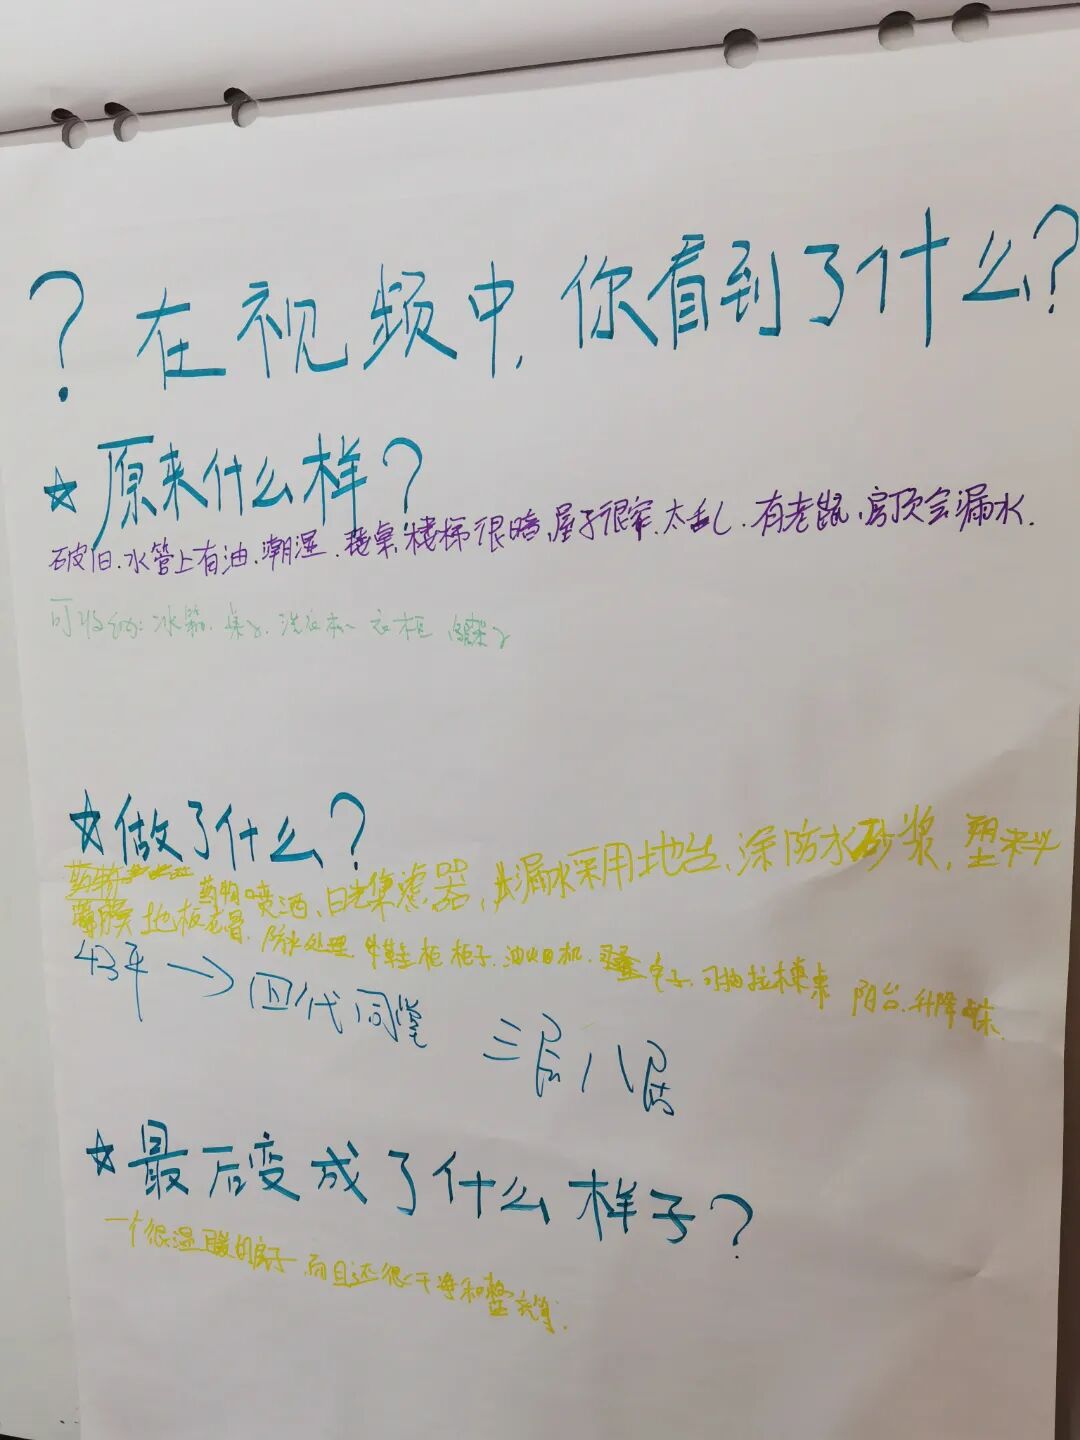 ? 在视频中，你看到了什么?
☆ 原来什么样?
破旧.水管上有油.潮湿.楼梯很暗,屋子很窄.太乱.有老鼠,房顶会漏水.
冰箱.桌子.洗衣机 衣柜
☆做了什么?
药物喷洒、日光集滤器,漏水采用地台、涂防水砂浆,塑料
薄膜 地板龙骨.防水处理 鞋柜 柜子.油烟机. 阳台.升降床.
43平 → 四代同堂
三居八居
☆最后变成了什么样子?
一个很温暖的房子,而且还很干净和整